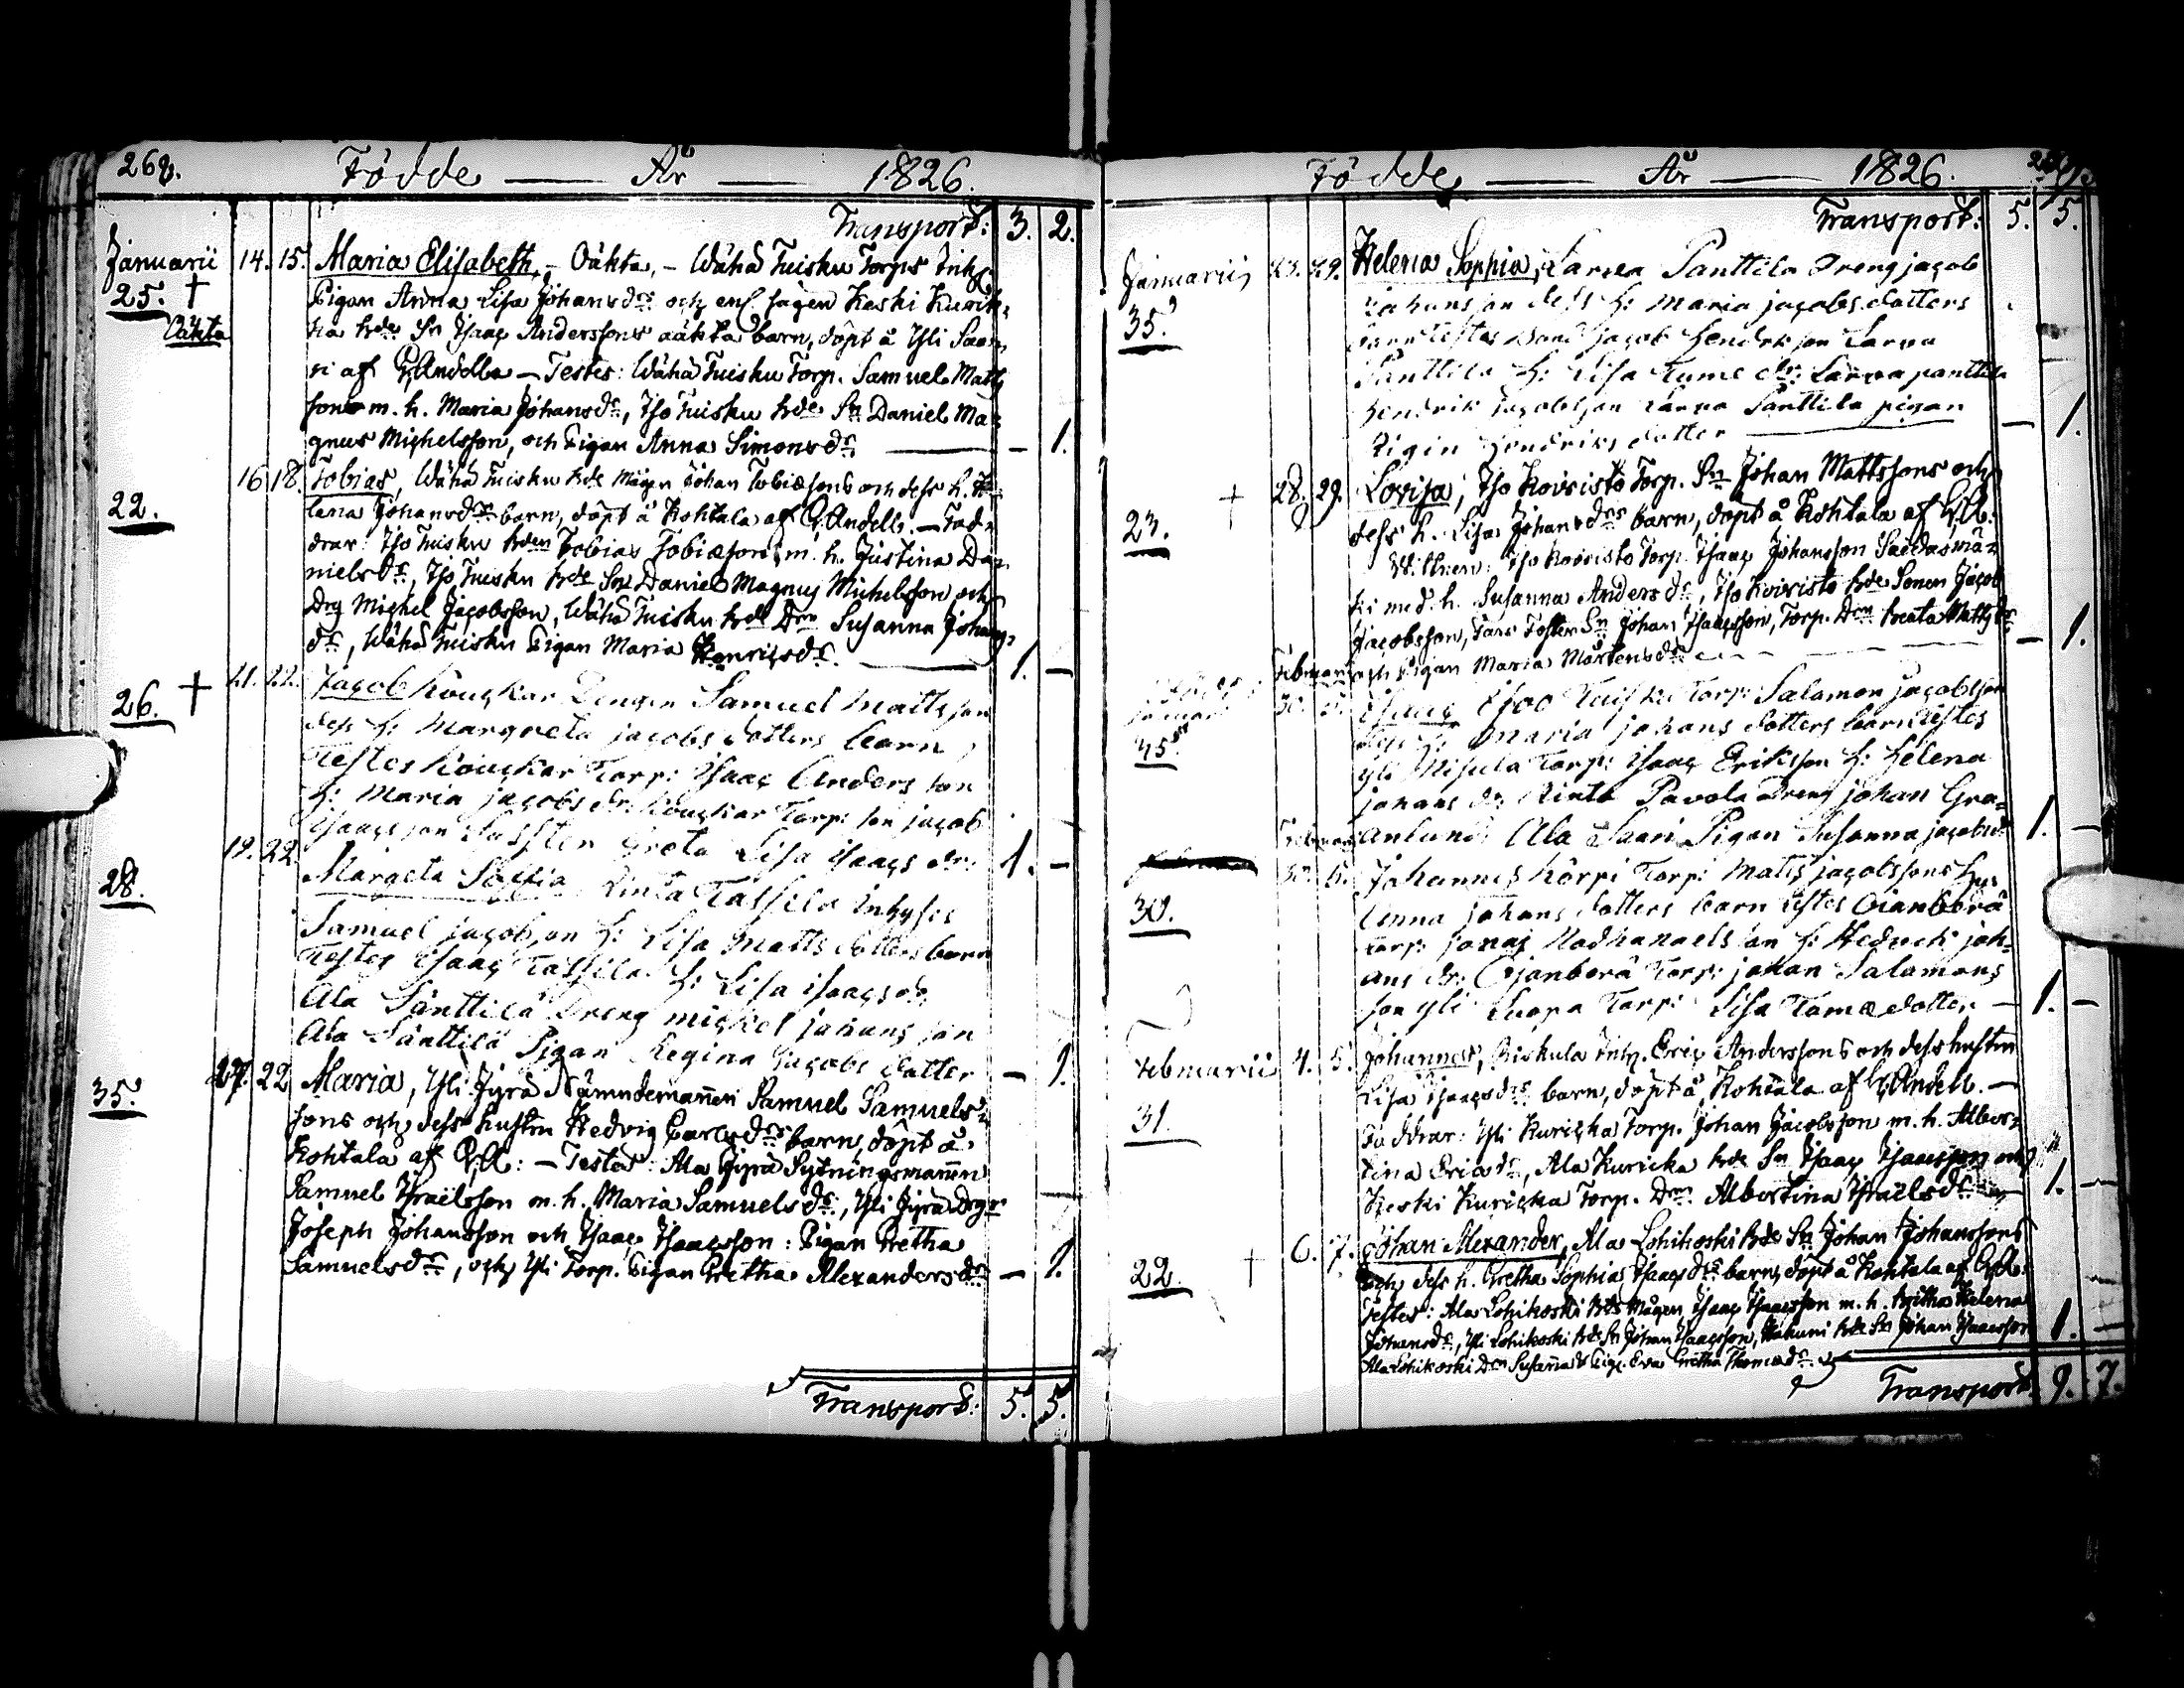 268. Födde — År — 1826.
Transport: 3. 2.
Januarii 14. 15. Maria Elisabeth, – Oäkta, – Wähä Tuisku Torps Inhs
25. † Pigan Anna Lisa Johansdr: och enl. sägen Keski Kurik-
Oäkta ka bde Sn Isaac Anderssons oäkta barn, döpt å Yli Saa-
ri af G. Andell. — Testes: Wähä Tuisku Torp. Samuel Matts
son m. h. Maria Johansdr, Iso Tuisku bde Sn Daniel Ma-
gnus Michelsson, och Pigan Anna Simonsdr — – 1.
16. 18. Tobias, Wähä Tuisku bde mågen Johan Tobiæsons och dess h. He-
22. lena Johansdrs barn, döpt å Kohtala af G. Andell. — Fad-
drar: Iso Tuisku bden Tobias Tobiæson, m. h. Justina Da-
nielsdr, Iso Tuisku bde Son Daniel Magnus Michelsson och
Drg Michel Jacobsson, Wähä Tuisku bde Drn Susanna Johans
dr, Wähä Tuisku Pigan Maria Henricsdr. — 1. –
26. † 21. 22. Jacob Kouckar Drengen Samuel Mattsson
dess h: Margreta jacobs dotters barn
Testes Kouckar Torp: Isaac Anders son
h: Maria jacobs dr: Kouckar Torp: son jacob
Isaacs son Greta Lisa Isaacs dr: 1. –
28. 19. 22. Margeta Soffia Tassila Inhyses
Samuel jacobson h: Lisa Matts dotters barn
Testes Isaac Tassila h: Lisa Isaacs dr:
Ala Säntilä Dreng michel johans son
Ala Säntilä Pigan Regina jacobs dotter – 1.
35. 22 Maria, Yli Jyrä Nämndemannen Samuel Samuels-
sons och dess hustru Hedvig Carlsdrs barn, döpt å
Kohtala af G. A: — Testes: Ala Jyrä Sytningsmannen
Samuel Israëlsson m. h. Maria Samuelsdr, Yli Jyrä Drgr
Joseph Johansson och Isaac Isaacsson: Pigan Gretha
Samuelsdr, och Yli Torp. Pigan Gretha Alexandersdr – 1.
Transport: 5. 5.
Födde — År — 1826.
Transport: 5. 5.
Januarii 29. Helena Sophia, Larva Panttila Dreng jacob
35. Johansson dess h: Maria jacobs dotters
barn Testes Bond jacob Hendrikson Larva
Panttila h: Lisa dr: Larva panttila
Hendrik jacobsson Larva Panttila pigan
Hendriks dotter — – 1.
23. † 28. 29. Lovisa, Iso Koivisto Torp. Sn Johan Mattssons och
dess h. Lisa Johansdrs barn, döpt å Kohtala af G. A:
Wittnen: Iso Koivisto Torp. Isaac Johansson
ki med h. Susanna Andersdr, Iso Koivisto bde Sonen Jacob
Jacobsson, Foster Sn Johan Isaacsson, Torp. Drn Beata Mattsdr
och Pigan Maria Mårtensdr — – 1.
30. Isaac Isoo Tuisku Torp: Salamon jacobsson
dess h: Maria johans dotters barn Testes
45. Yli Torp: Isaac Eriksson h: Helena
johans dr: Rinta Pavola Dreng johan Gra-
anlund Ala Saari Pigan Susanna jacobsdr 1. –
30. Johannes Körpi Torp: Matts jacobssons hus
Anna johans dotters barn Testes
torp: jonas Nadhanaels son h: Hedvek joh-
ans dr: Torp: johan Salamons
son Yli Torp: Lisa Tomædotter — 1. –
Februarii 4. 5. Johannes, Inh. Eric Anderssons och dess hustru
31. Lisa Isaacsdrs barn, döpt å Kohtala af G. Andell. —
Faddrar: Yli Kuricka Torp. Johan Jacobsson m. h. Alber-
tina Ericsdr, Ala Kuricka bde Sn Isaac Isaacsson och
Keski Kuricka Torp. Drn Albertina Israëlsdr — 1. –
22. † 6. 7. Johan Alexander, Ala Lohikoski bde Sn Johan Johanssons
och dess h. Gretha Sophia Isaacsdrs barn, döpt å Kohtala af G. A.
Testes: Ala Lohikoski bds Mågen Isaac Isaacsson m. h. Britha Helena
Johansdr, Yli Lohikoski bde Sn Johan Isaacsson, Hakuni bde Sn Johan Isaacsson 1. –
Ala Lohikoski Drn Susanna & Pig. Eva Gretha Thomædr.
Transport 9. 7.